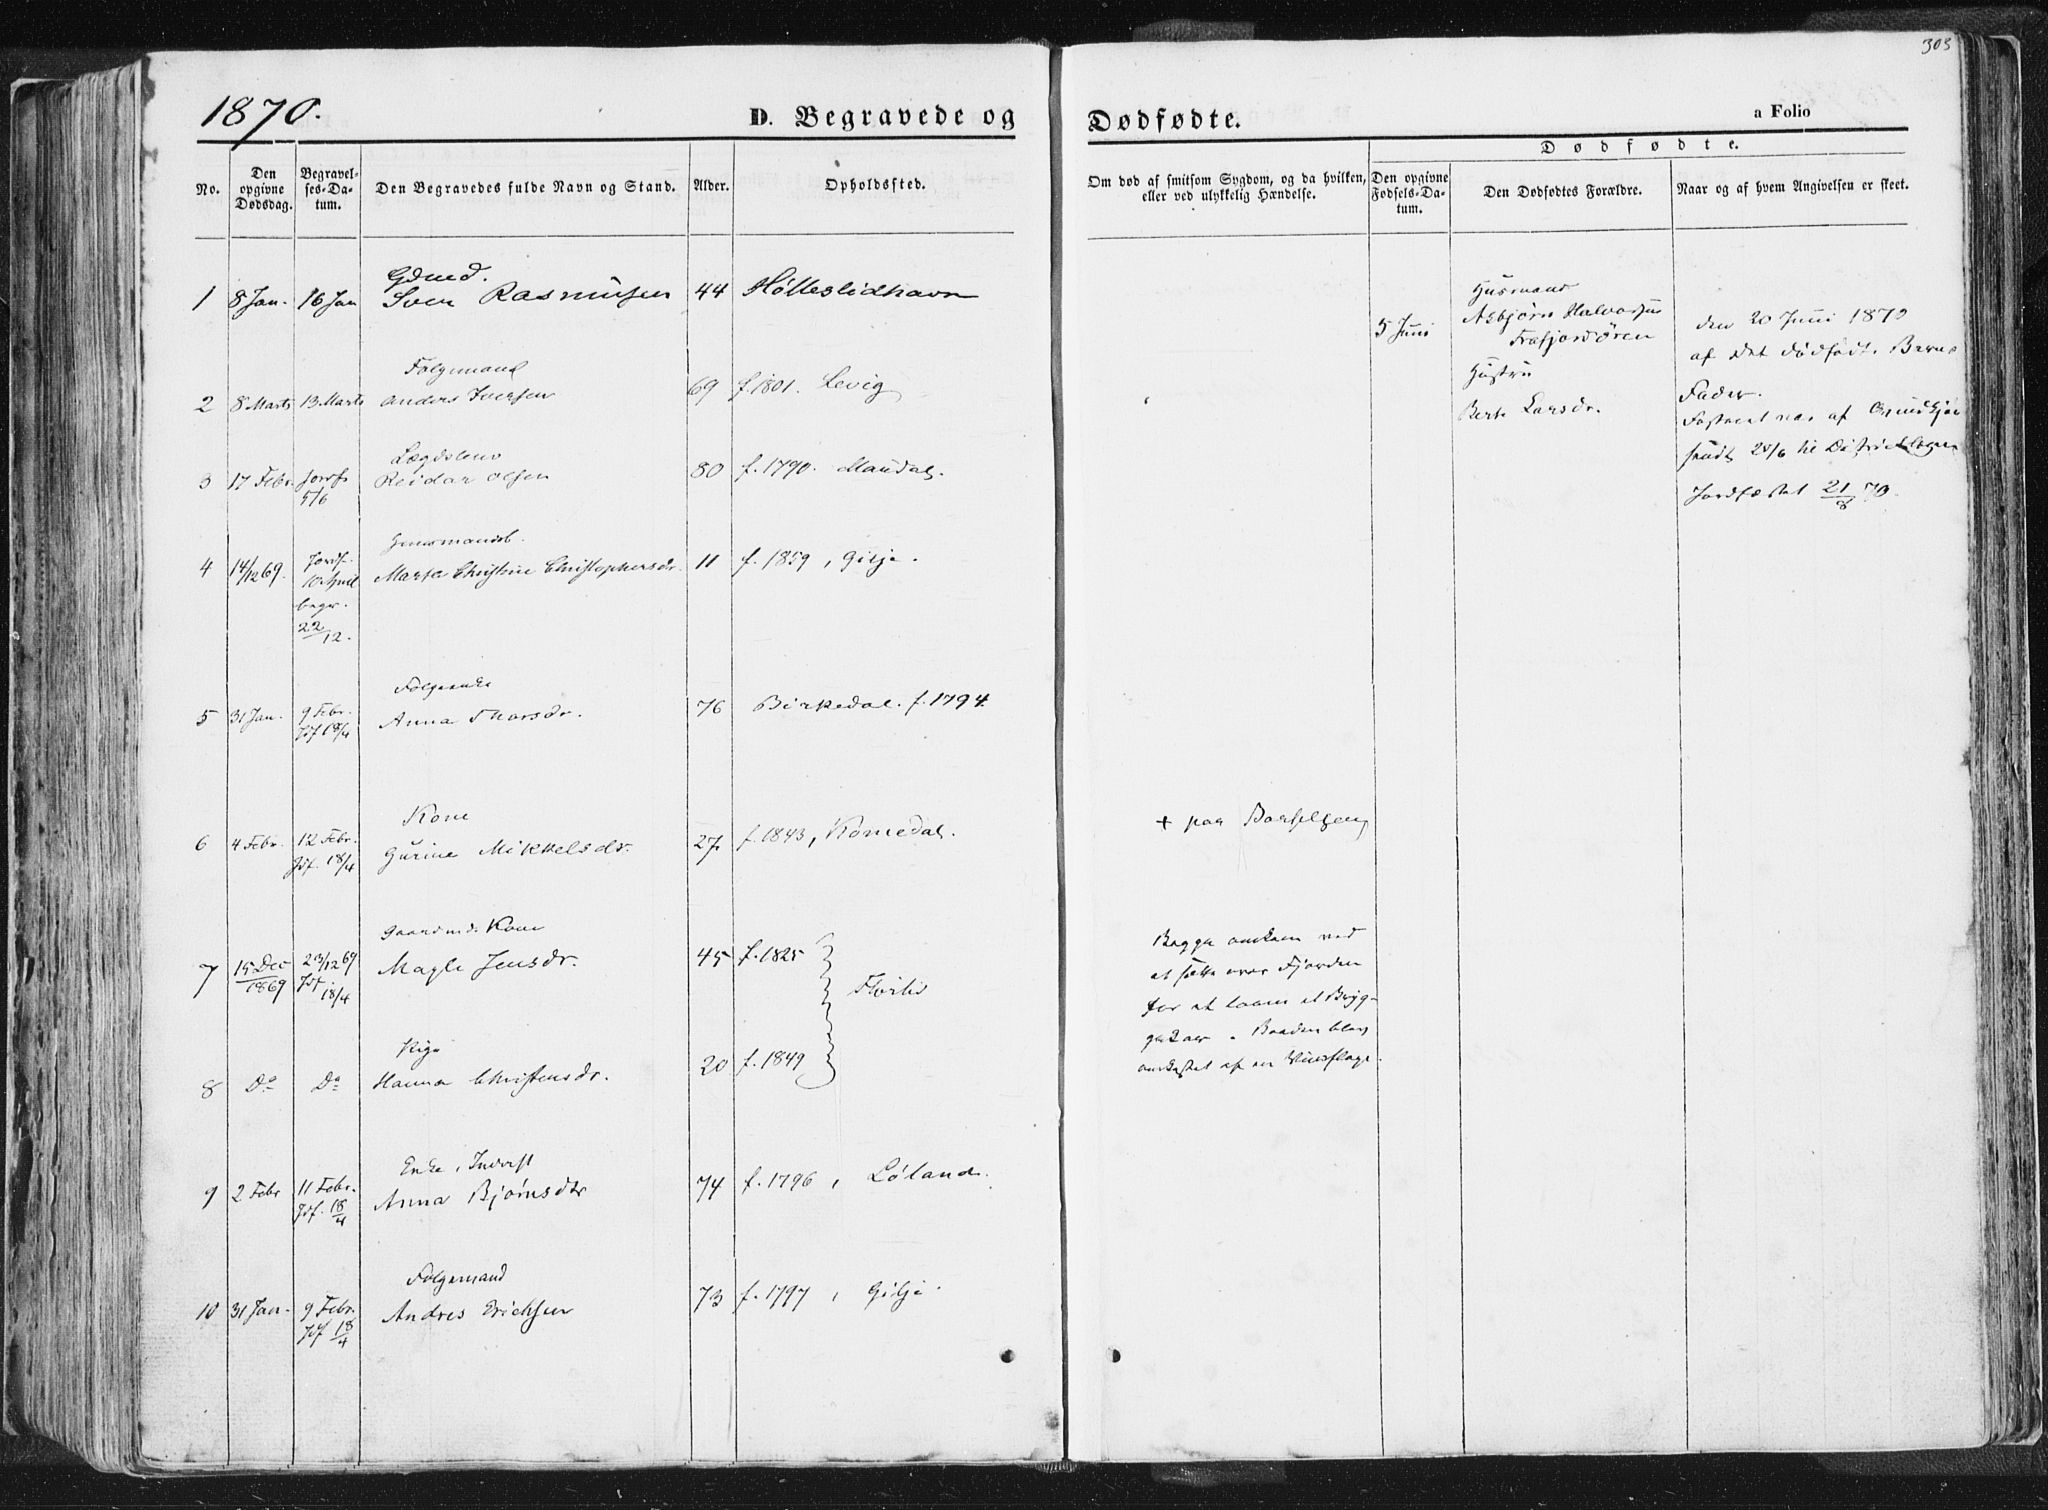 303
1870.
D. Begravede og Dødfødte.
a Folio
No.
Den opgivne Dødsdag.
Begravel-ses-Da-tum.
Den Begravedes fulde Navn og Stand.
Alder.
Opholdssted.
Om død af smitsom Sygdom, og da hvilken, eller ved ulykkelig Hændelse.
Dødfødte.
Den opgivne Fødsels-Da-tum.
Den Dødfødtes Forældre.
Naar og af hvem Angivelsen er skeet.
Gdmd.
1 8 Jan. 16 Jan Sven Rasmussen 44 Hølleslidhavn
Husmand
5 Juni Asbjørn Halvorsen
Frafjordøren
Hustru
Berte Larsdr.
den 20 Juni 1870
af det dødfødte Barns
Fader.
sendt 28/6 til
Jordfæstet 21/8 70.
Følgemand
2 8 Marts 13 Marts Anders Iversen 69 f. 1801. Levig
Lægdslem
3 17 Febr. Jordf. 5/6 Reidar Olsen 80 f. 1790. Maudal.
4 14/12 69. Jordf. 10 April Marta Christine Christophersdr. 11 f. 1859, Gilje.
begr.
22/12.
Følgeenke
5 31 Jan. 9 Febr. Jdf 18/4 Anna Thorsdr. 76 Birkedal. f. 1794
Kone
6 4 Febr. 12 Febr. Jdf. 18/4 Gurine Mikkelsdr. 27. f. 1843, Kommedal. + paa Barselseng
Gaardmds Kone
7 15 Dec 1869 23/12 69 Jdf 18/4 Magle Jensdr. 45 f. 1825
Flørlid
Begge omkom ved
at sætte over Fjorden
for at laane et Bryg-
gekar. Baaden blev
omkastet af en Vindflage.
Pige
8 Do Do Hanna Christensdr. 20 f. 1849
Enke, Inderst
9 2 Febr 11 Febr. Jdf. 18/4 Anna Bjørnsdtr 74 f. 1796, Løland.
Følgemand
10 31 Jan. 9 Febr. Jdf 18/4 Andres Erichsen 73 f. 1797, Gilje.